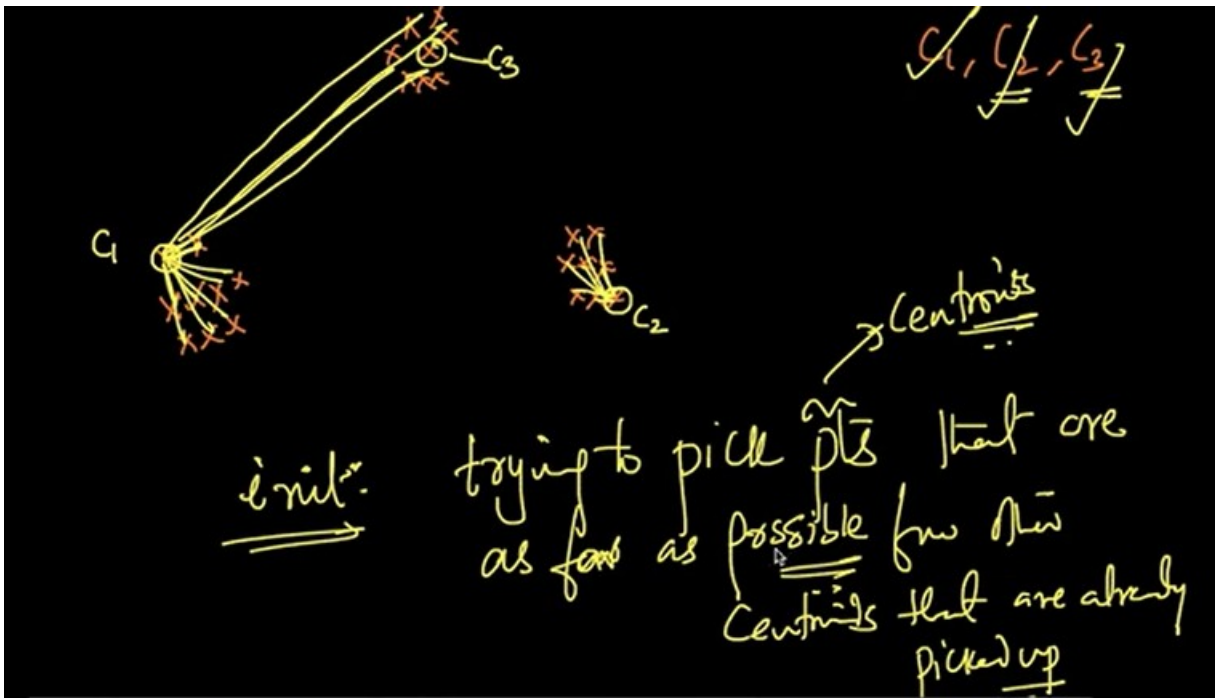 C3
C1, C2, C3
C1
C2
Centroids
init:
trying to pick pts that are
as far as possible from other
Centroids that are already
picked up